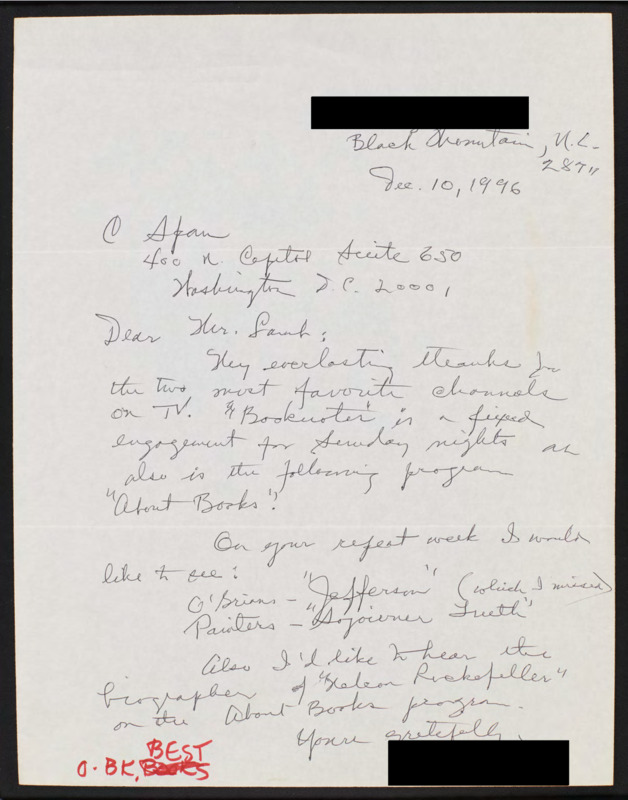 Black Mountain, N.C.
28711
Dec. 10, 1996
C Span
400 N. Capitol Suite 650
Washington D.C. 20001
Dear Mr. Lamb:
My everlasting thanks for
the two most favorite channels
on TV. "Booknotes" is a fixed
engagement for Sunday nights as
also is the following program
"About Books".
On your repeat week I would
like to see:
O'Briens - "Jefferson" (which I missed)
Painters - "Sojourner Truth"
Also I'd like to hear the
biographer of "Nelson Rockefeller"
on the About Books program.
Yours gratefully,
BEST
O-BK, BOOKS